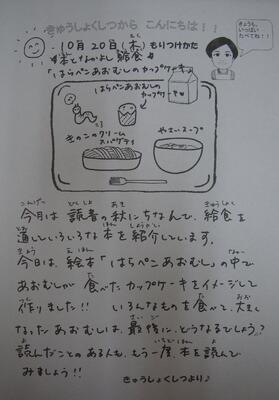 きゅうしょくしつから こんにちは！！
きょうも、
いっぱい
たべてね！！
10月20日(木) もりつけかた
☆本となかよし給食☆
「はらぺこあおむしのカップケーキ」
はらぺこあおむしの
カップケーキ
きのこのクリーム
スパゲティ
やさいスープ
今月は 読書の秋にちなんで、給食を
通していろいろな本を紹介しています。
今日は、絵本「はらぺこあおむし」の中で
あおむしが 食べたカップケーキをイメージして
作りました!! いろんなものを食べて、大きく
なったあおむしは、最後に、どうなるでしょう?
読んだことのある人も、もう一度、本を読んで
みましょう!!
きゅうしょくしつより♪